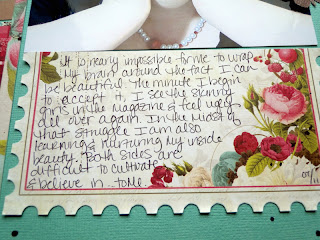 It is nearly impossible for me to wrap
My brain around the fact I can
be beautiful. The minute I begin
to accept it, I see the skinny
girls in the magazine & feel ugly
all over again. In the midst of
that struggle I am also
learning & nurturing my inside
beauty. Both sides are
difficult to cultivate
& believe in.. to me.